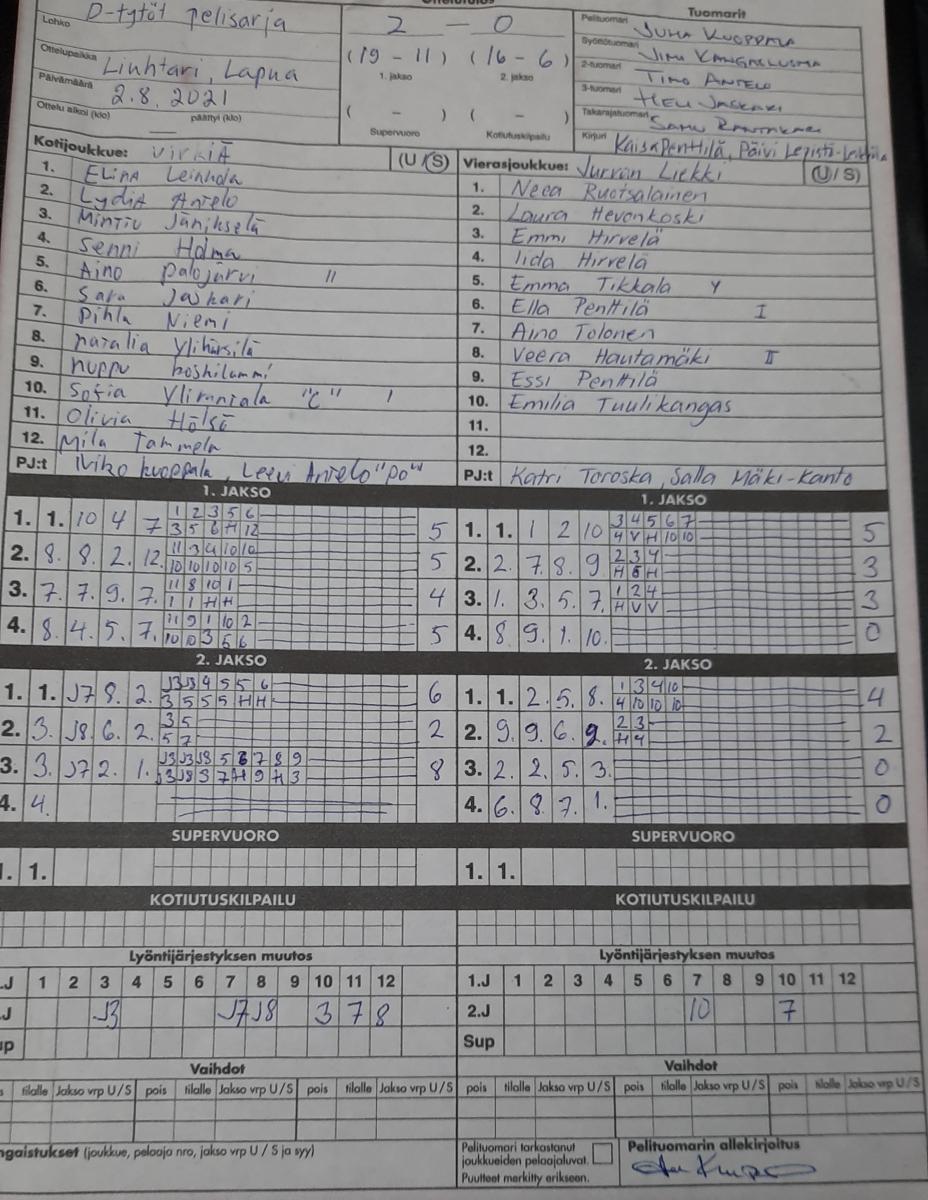 Lohko D-tytöt pelisarja
Ottelupaikka Linhtari, Lapua
Päivämäärä 2.8.2021
Ottelu alkoi (klo) — päättyi (klo)
2 — 0
(19 – 11) (16 – 6)
1. jakso 2. jakso
( – ) ( – )
Supervuoro Kotiutuskilpailu
Tuomarit
Pelituomari JUHA KUOPPALA
Syöttötuomari
2-tuomari TIMO ANTELO
3-tuomari
Takarajatuomari
Kirjuri Kaisa Penttilä, Päivi
Kotijoukkue: VirkiÄ (U/S)
1. ELinA Leinhola
2. LydiA Antelo
3. Jänikselä
4. Senni Holma
5. Aino Palojärvi II
6. Sara Jaskari
7. Pihla Niemi
8. Natalia Ylihärsilä
9. Nuppu
10. Sofia "C" I
11. Olivia Hölsö
12. Mila Tammela
PJ:t Kuoppala, Leevi Antelo "PO"
Vierasjoukkue: Jurvan Liekki (U/S)
1. Neea Ruotsalainen
2. Laura Hevonkoski
3. Emmi Hirvelä
4. Iida Hirvelä
5. Emma Tikkala Y
6. Ella Penttilä I
7. Aino Tolonen
8. Veera Hautamäki II
9. Essi Penttilä
10. Emilia Tuulikangas
11.
12.
PJ:t Katri Toroska, Salla Mäki-Kanto
1. JAKSO
1. 1. 10 4 7 1 2 3 5 6 5
3 5 6 H 12
2. 8. 8. 2. 12. 11 3 4 10 10 5
10 10 10 10 5
3. 7. 7. 9. 7. 11 8 10 1 4
1 1 H H
4. 8. 4. 5. 7. 11 9 1 10 2 5
10 10 3 5 6
2. JAKSO
1. 1. J7 8. 2. J3 J3 4 5 5 6 6
3 5 5 5 H H
2. 3. J8 6. 2. 3 5 2
5 7
3. 3. J7 2. 1. J3 J3 J8 5 6 7 8 9 8
J3 J8 3 7 H 9 H 3
4. 4.
SUPERVUORO
1. 1.
KOTIUTUSKILPAILU
Lyöntijärjestyksen muutos
.J 1 2 3 4 5 6 7 8 9 10 11 12
.J J3 J7 J8 3 7 8
up
Vaihdot
tilalle Jakso vrp U/S pois tilalle Jakso vrp U/S pois tilalle Jakso vrp U/S
1. JAKSO
1. 1. 1 2 10 3 4 5 6 7 5
4 V H 10 10
2. 2. 7. 8. 9. 2 3 4 3
H 5 H
3. 1. 3. 5. 7. 1 2 4 3
H V V
4. 8. 9. 1. 10. 0
2. JAKSO
1. 1. 2. 5. 8. 1 3 4 10 4
4 10 10 10
2. 9. 9. 6. 9. 2 3 2
H 4
3. 2. 2. 5. 3. 0
4. 6. 8. 7. 1. 0
SUPERVUORO
1. 1.
KOTIUTUSKILPAILU
Lyöntijärjestyksen muutos
1.J 1 2 3 4 5 6 7 8 9 10 11 12
2.J 10 7
Sup
Vaihdot
pois tilalle Jakso vrp U/S pois tilalle Jakso vrp U/S pois tilalle Jakso vrp U/S
ngaistukset (joukkue, pelaaja nro, jakso vrp U / S ja syy)
Pelituomari tarkastanut
joukkueiden pelaajaluvat.
Puutteet merkitty erikseen.
Pelituomarin allekirjoitus